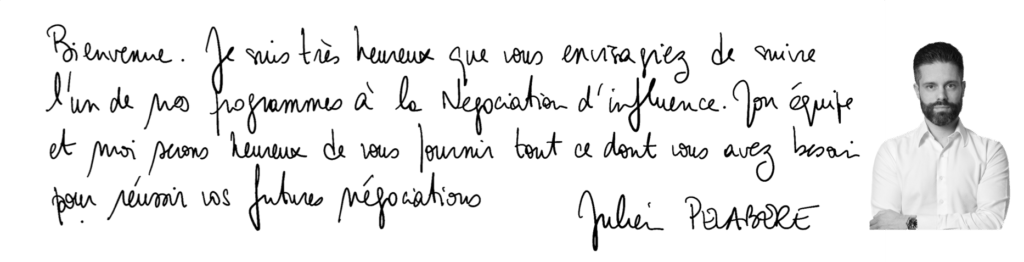 Bienvenue. Je suis très heureux que vous envisagiez de suivre
l'un de nos programmes à la Négociation d'influence. Mon équipe
et moi serons heureux de vous fournir tout ce dont vous avez besoin
pour réussir vos futures négociations
Julien PELABERE